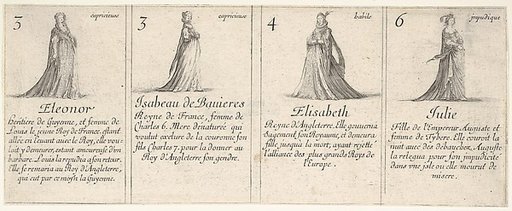 3 capricieuse
Eleonor
Heritiere de Guyenne, et femme de
Louis le jeune Roy de France, estant
allée en levant avec le Roy, elle vou-
lut y demeurer, estant amoureuse d'un
barbare. Louis la repudia a son retour.
Elle se remaria au Roy d'Angleterre,
qui eut par ce moyen la Guyenne.
3 capricieuse
Isabeau de Bavieres
Royne de France, femme de
Charles 6. Mere dénaturée qui
voulut exclure de la couronne son
fils Charles 7. pour la donner au
Roy d'Angleterre son gendre.
4 habile
Elisabeth
Royne d'Angleterre. Elle gouverna
sagement son Royaume, et demeura
fille jusqu'a la mort; ayant rejetté
l'alliance des plus grands Roys de
l'Europe.
6 impudique
Julie
Fille de l'Empereur Auguste et
femme de Tybere. Elle couroit la
nuit avec des debauchez, Auguste
la relegua pour son impudicité
dans une isle ou elle mourut de
misere.